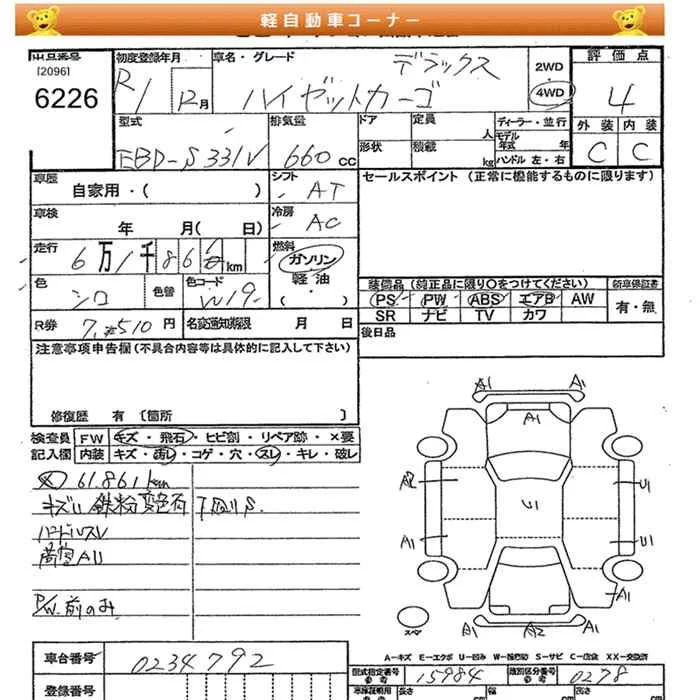 軽自動車コーナー
出品番号
[2096]
6226
初度登録年月
R1 12月
車名・グレード
デラックス
ハイゼットカーゴ
2WD
4WD
評価点
4
外装 内装
C C
型式
EBD-S331V
排気量
660 cc
ドア
定員
人
形状
積載
kg
ディーラー・並行
モデル年式 年
ハンドル 左・右
車歴
自家用・( )
シフト
AT
セールスポイント (正常に機能するものに限ります)
車検
年 月( 日)
冷房
AC
走行
6万1千86 km
燃料
ガソリン
軽油
・( )
色
シロ
色替
色コード
W19
装備品 (純正品に限り○をつけてください)
PS PW ABS エアB AW
SR ナビ TV カワ
新車保証書
有・無
R券
7,510 円
名変通知期限 月 日
後日品
注意事項申告欄 (不具合内容等は具体的に記入して下さい)
修復歴 有 [箇所 ]
検査員 FW キズ・飛石・ヒビ割・リペア跡・×要
記入欄 内装 キズ・汚レ・コゲ・穴・スレ・キレ・破レ
61.861km
キズU 鉄粉 変色有 下廻りS.
ハンドルスレ
荷室AU
P/W.前のみ
A1 A1
A1
A2 U1
U1
A1 U1
A1
A1 A2 A1
スペア
A-キズ E-エクボ U-凹み W-補修跡 S-サビ C-腐食 XX-交換済
車台番号
0234792
型式指定番号
参考
15984
類別区分番号
参考
0278
登録番号